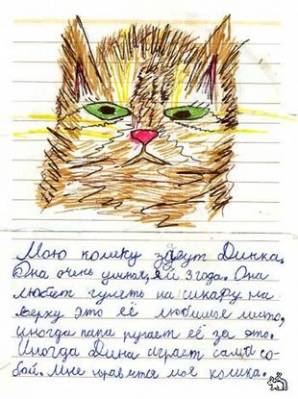 Мою кошку зовут Динка.
Она очень умная, ей 3 года. Она
любит гулять на шкафу на
верху это её любимое место,
иногда папа ругает её за это.
Иногда Дина играет сама со-
бой. Мне нравится моя кошка.